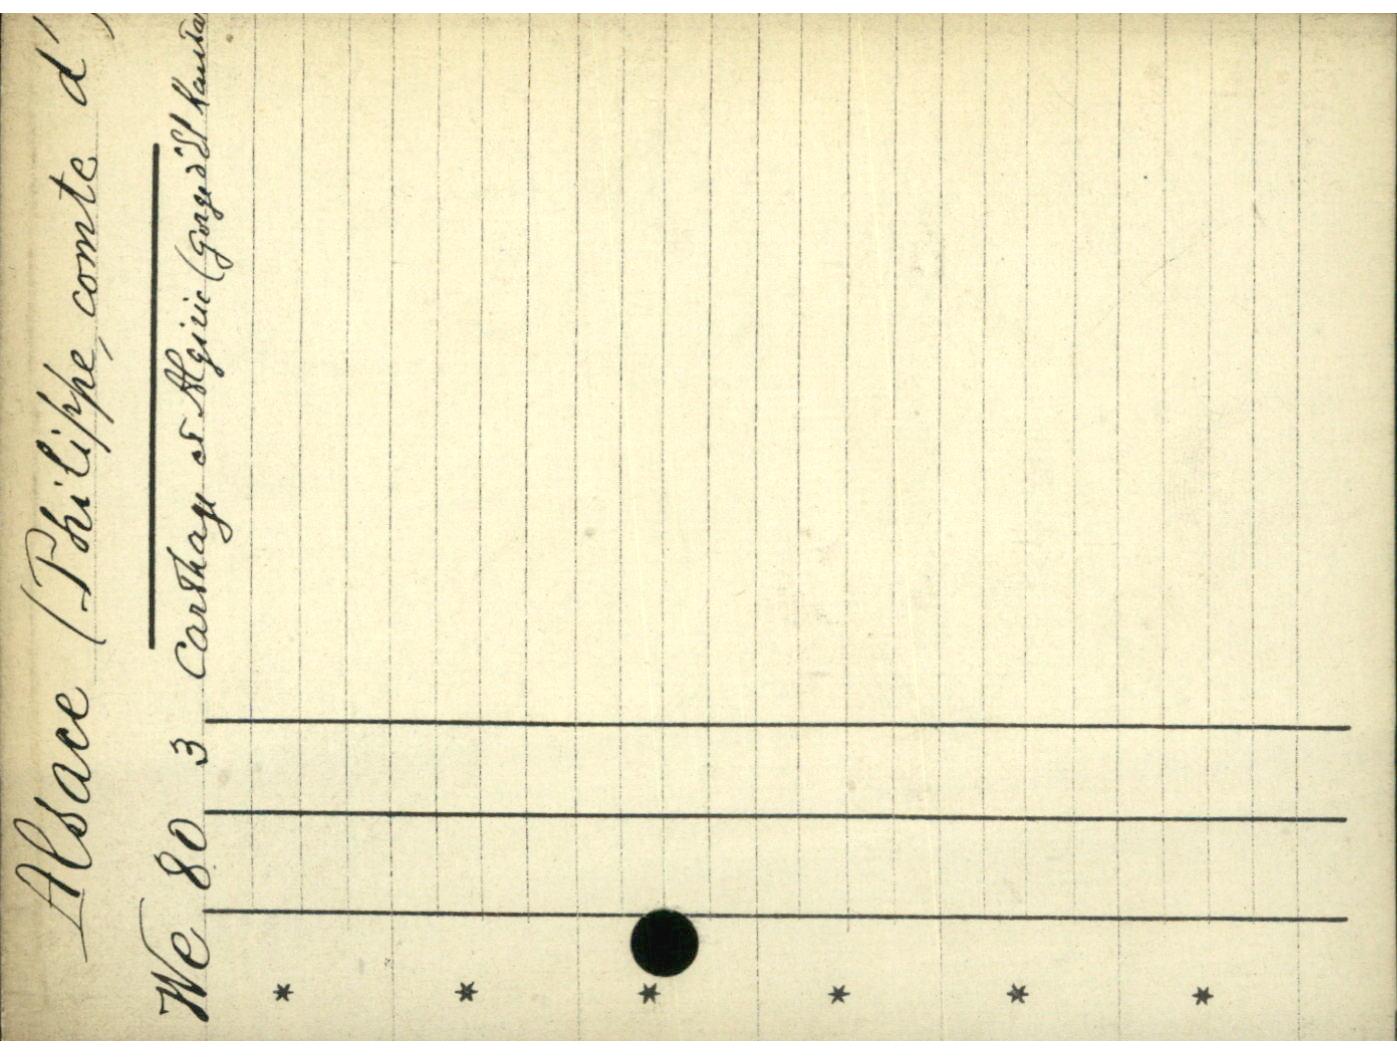 Alsace (Philippe, comte d')
We 80 3 Carthage et Algérie (gorge d'El Kanta